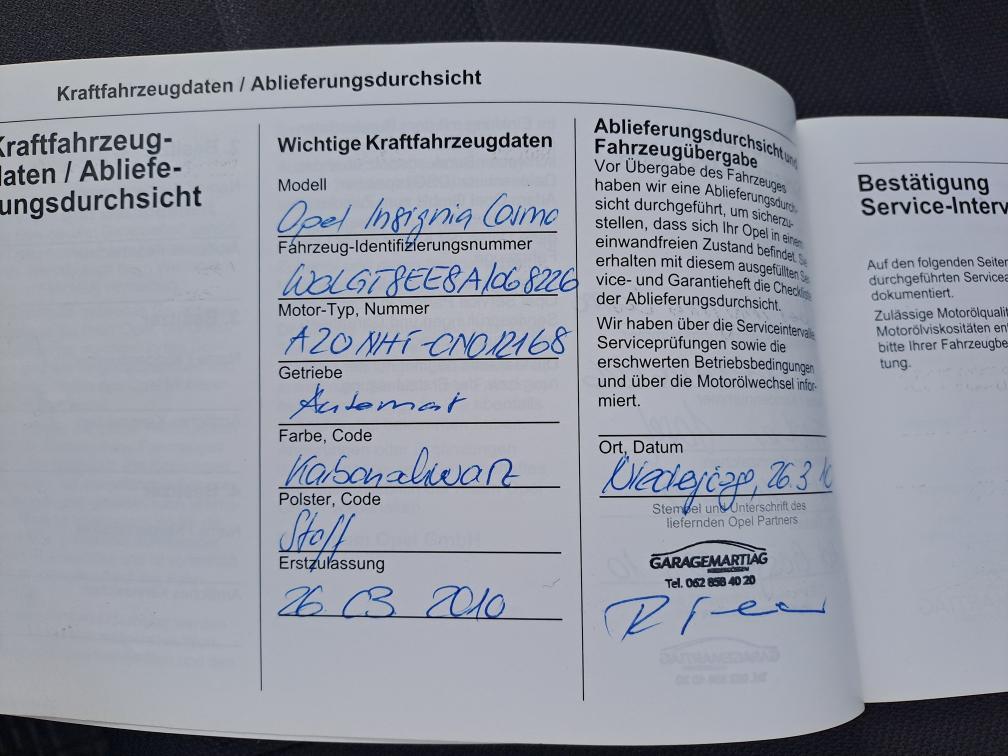 Kraftfahrzeugdaten / Ablieferungsdurchsicht
Kraftfahrzeug-
daten / Abliefe-
ungsdurchsicht
Wichtige Kraftfahrzeugdaten
Modell
Opel Insignia Cosmo
Fahrzeug-Identifizierungsnummer
WOLGT8EE8A1068226
Motor-Typ, Nummer
A20NHT-CN012168
Getriebe
Automat
Farbe, Code
Karbonschwarz
Polster, Code
Stoff
Erstzulassung
26. 03. 2010
Ablieferungsdurchsicht und
Fahrzeugübergabe
Vor Übergabe des Fahrzeuges
haben wir eine Ablieferungsdurch-
sicht durchgeführt, um sicherzu-
stellen, dass sich Ihr Opel in einem
einwandfreien Zustand befindet. Sie
erhalten mit diesem ausgefüllten Ser-
vice- und Garantieheft die Checkliste
der Ablieferungsdurchsicht.
Wir haben über die Serviceintervalle,
Serviceprüfungen sowie die
erschwerten Betriebsbedingungen
und über die Motorölwechsel infor-
miert.
Ort, Datum
26.3.10
Stempel und Unterschrift des
liefernden Opel Partners
GARAGEMARTIAG
Tel. 062 858 40 20
Bestätigung
Service-Interv
Auf den folgenden Seiten
durchgeführten Servicea
dokumentiert.
Zulässige Motorölqualit
Motorölviskositäten en
bitte Ihrer Fahrzeugbe
tung.